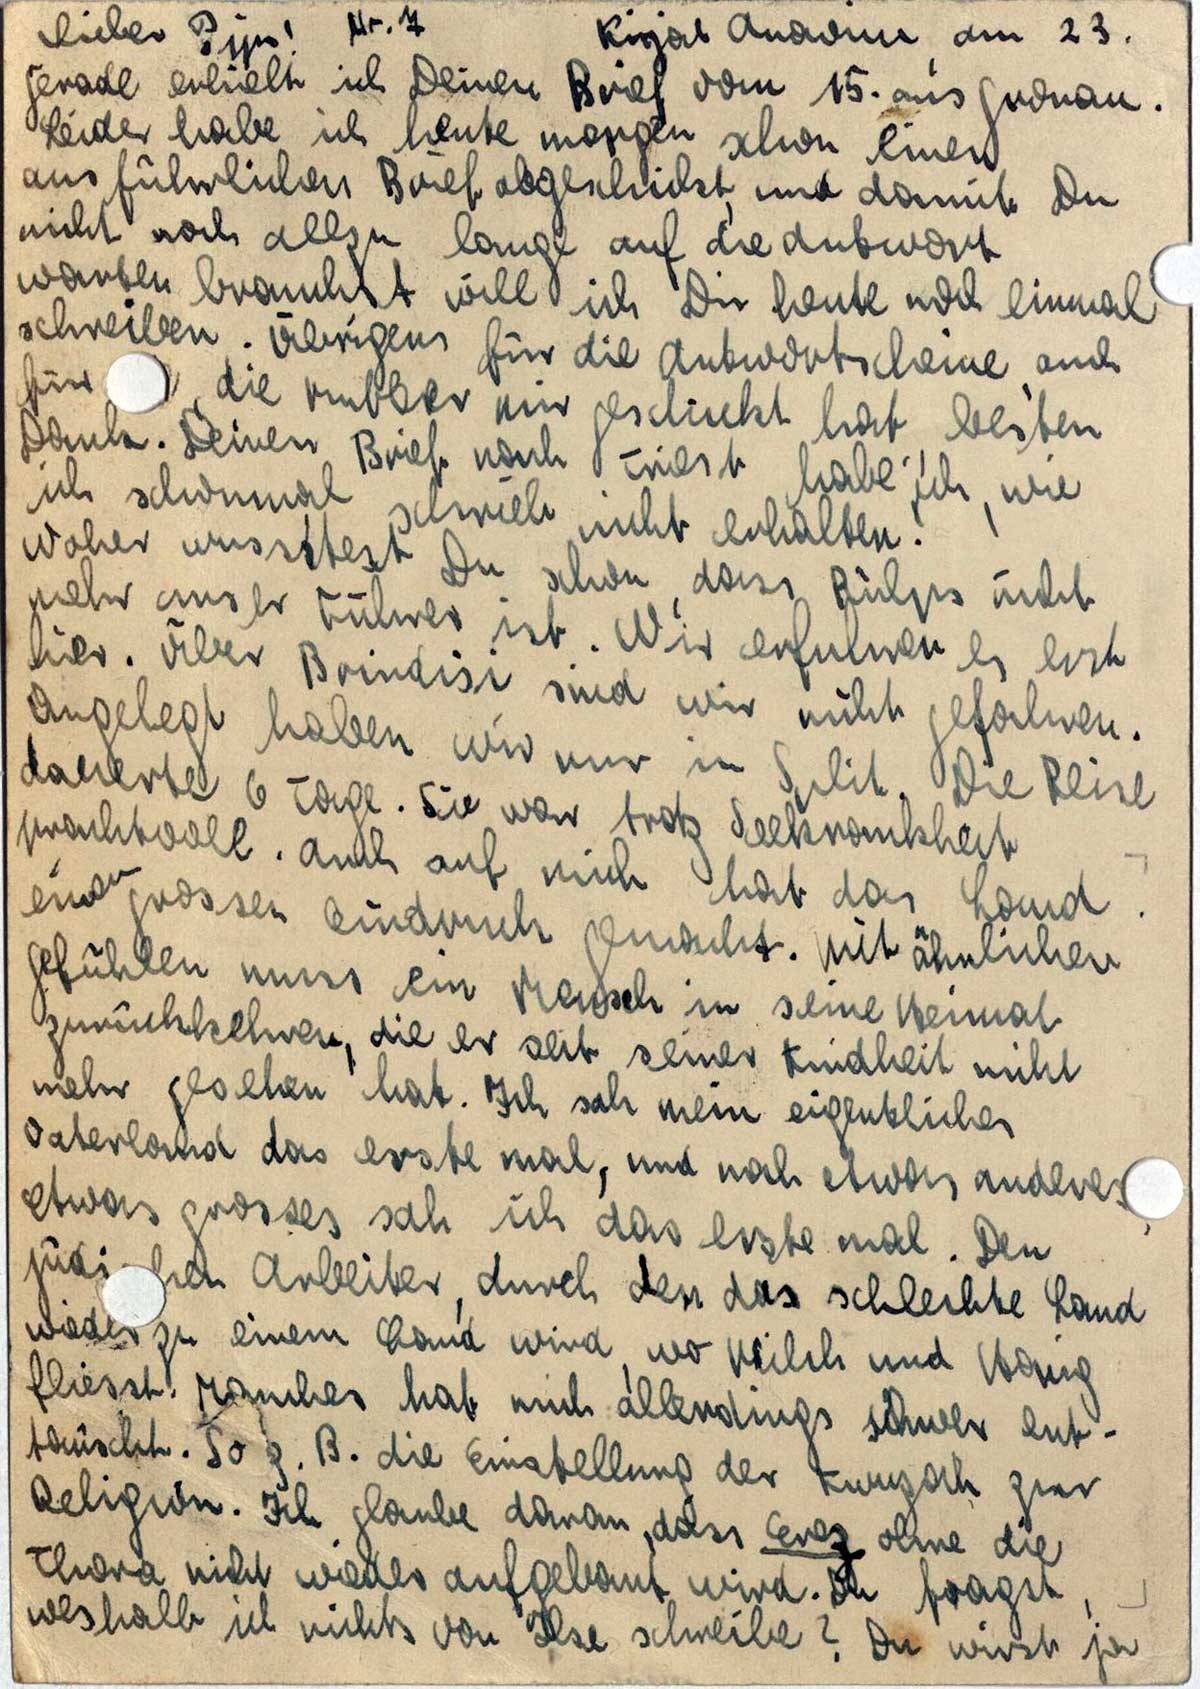 Lieber Pips! Nr. 7 Kirjat Anavim am 23.
Gerade erhielt ich Deinen Brief vom 15. aus
Leider habe ich heute morgen schon einen
ausführlichen Brief abgeschickt, und damit Du
nicht noch allzu lange auf die Antwort
warten brauchst will ich Dir heute noch einmal
schreiben. Übrigens für die Antwortscheine und
für die mir geschickt hat besten
Dank. Deinen Brief nach Triest habe ich, wie
ich schonmal schrieb nicht erhalten.
Woher wusstest Du schon, dass nicht
mehr unser Führer ist. Wir erfuhren es erst
hier. Über Brindisi sind wir nicht gefahren.
Angelegt haben wir nur in Split. Die Reise
dauerte 6 Tage. Sie war trotz Seekrankheit
prachtvoll. Auch auf mich hat das Land
einen grossen Eindruck gemacht. Mit ähnlichen
Gefühlen muss ein Mensch in seine Heimat
zurückkehren, die er seit seiner Kindheit nicht
mehr gesehen hat. Ich sah mein eigentliches
Vaterland das erste mal, und noch etwas anderes
etwas grosses sah ich das erste mal. Den
jüdi hen Arbeiter, durch den das schlechte Land
wieder zu einem Land wird, wo Milch und Honig
fliesst. Manches hat mich allerdings schwer ent-
täuscht. So z. B. die Einstellung der Kwuzoth zur
Religion. Ich glaube daran, dass Erez ohne die
Thora nicht wieder aufgebaut wird. Du fragst,
weshalb ich nichts von Ilse schreibe? Du wirst ja